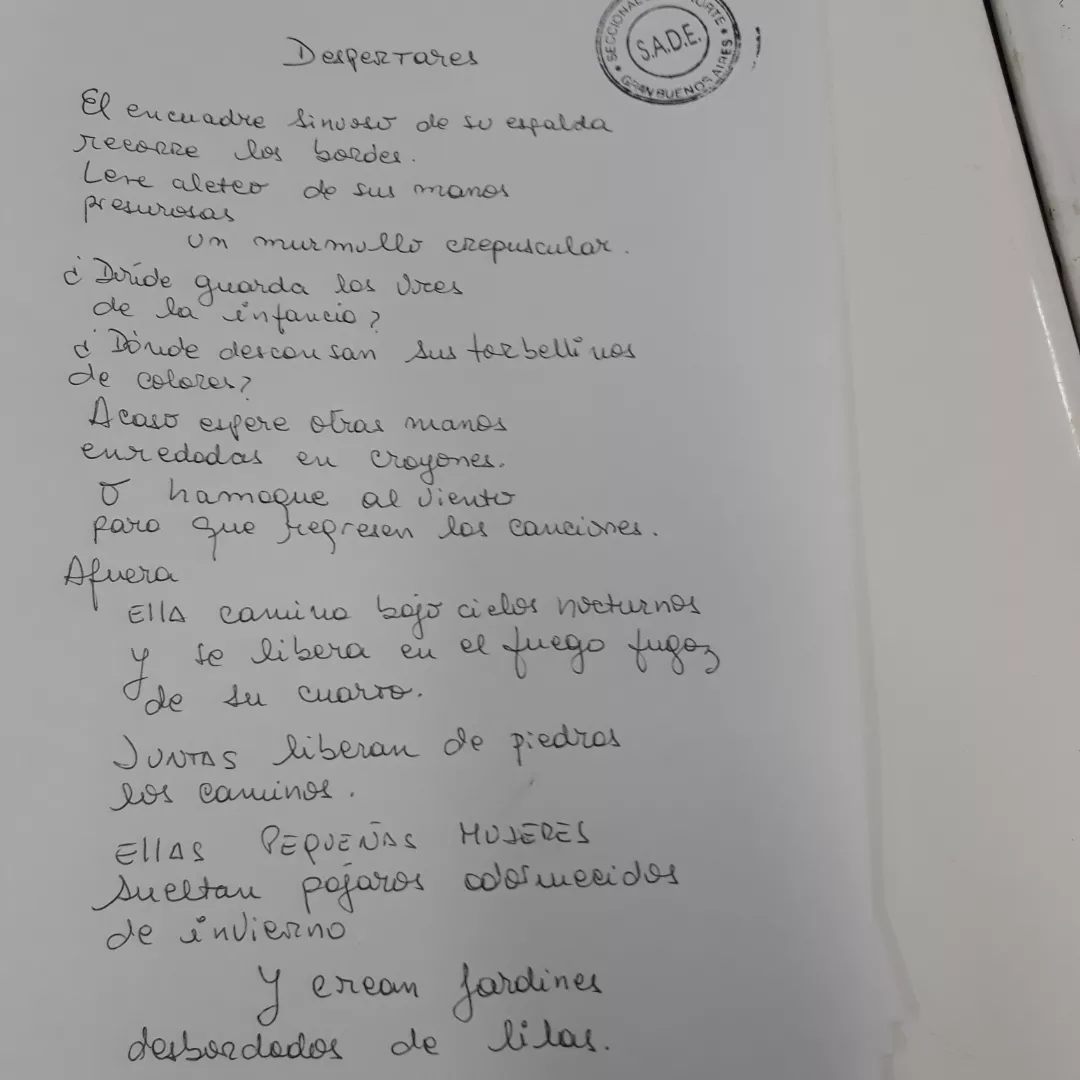 Despertares
SECCIONAL NORTE
S.A.D.E.
GRAN BUENOS AIRES
El encuadre sinuoso de su espalda
recorre los bordes.
Leve aleteo de sus manos
presurosas
un murmullo crepuscular.
¿Dónde guarda los
de la infancia?
¿Dónde descansan sus torbellinos
de colores?
Acaso espere otras manos
enredadas en crayones.
O hamaque al viento
para que regresen las canciones.
Afuera
Ella camina bajo cielos nocturnos
y se libera en el fuego fugaz
de su cuarto.
JUNTAS liberan de piedras
los caminos.
EllAS PEQUEÑAS MUJERES
sueltan pájaros adormecidos
de invierno
Y crean jardines
desbordados de lilas.